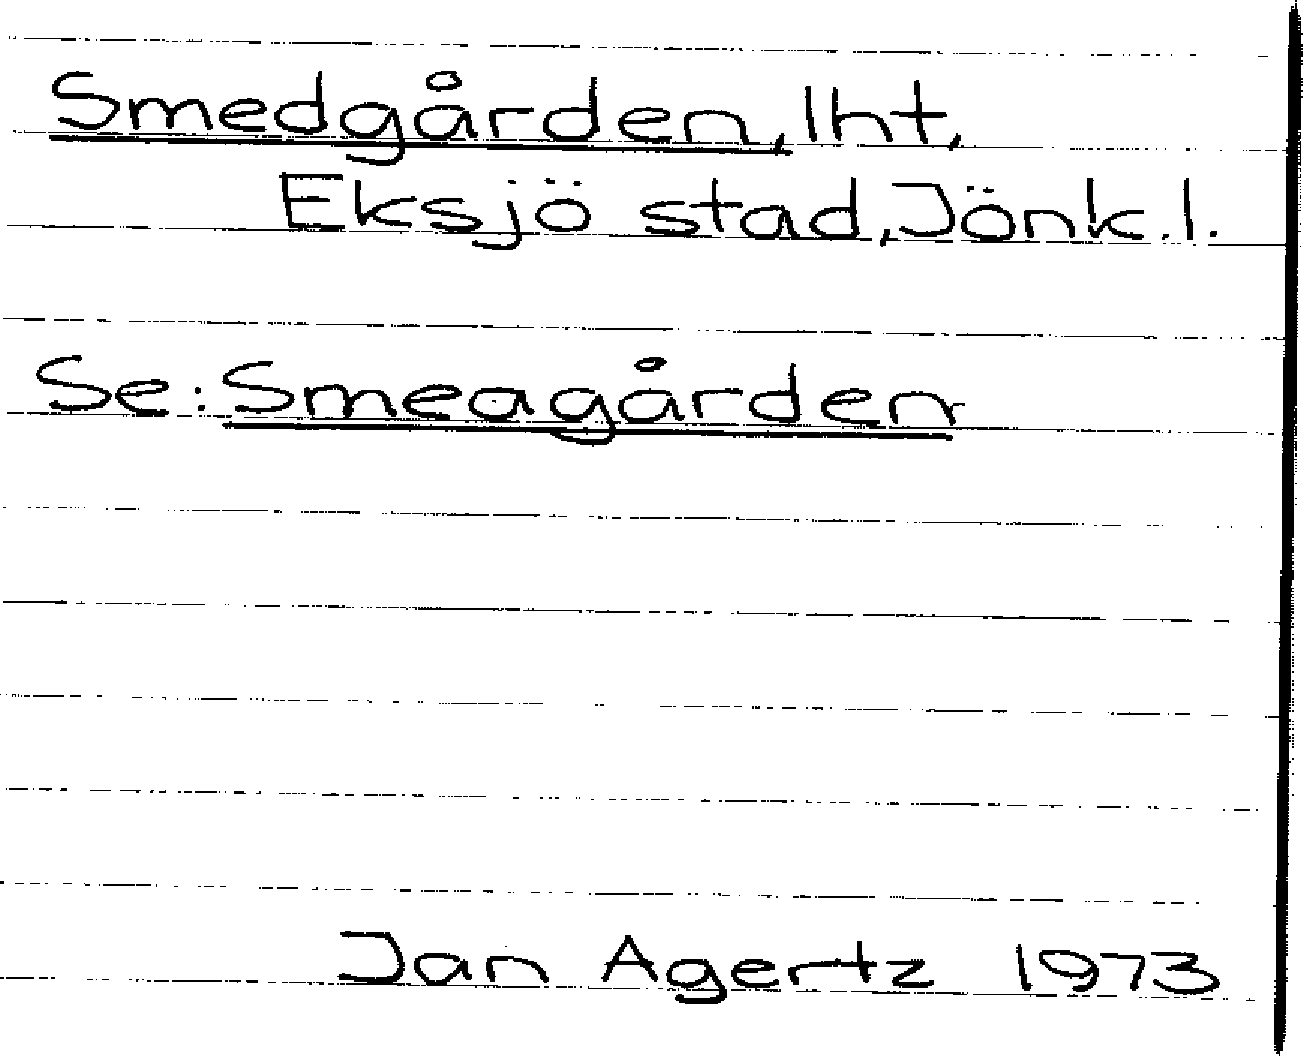 Smedgården, lht,
Eksjö stad, Jönk.l.
Se: Smeagården
Jan Agertz 1973